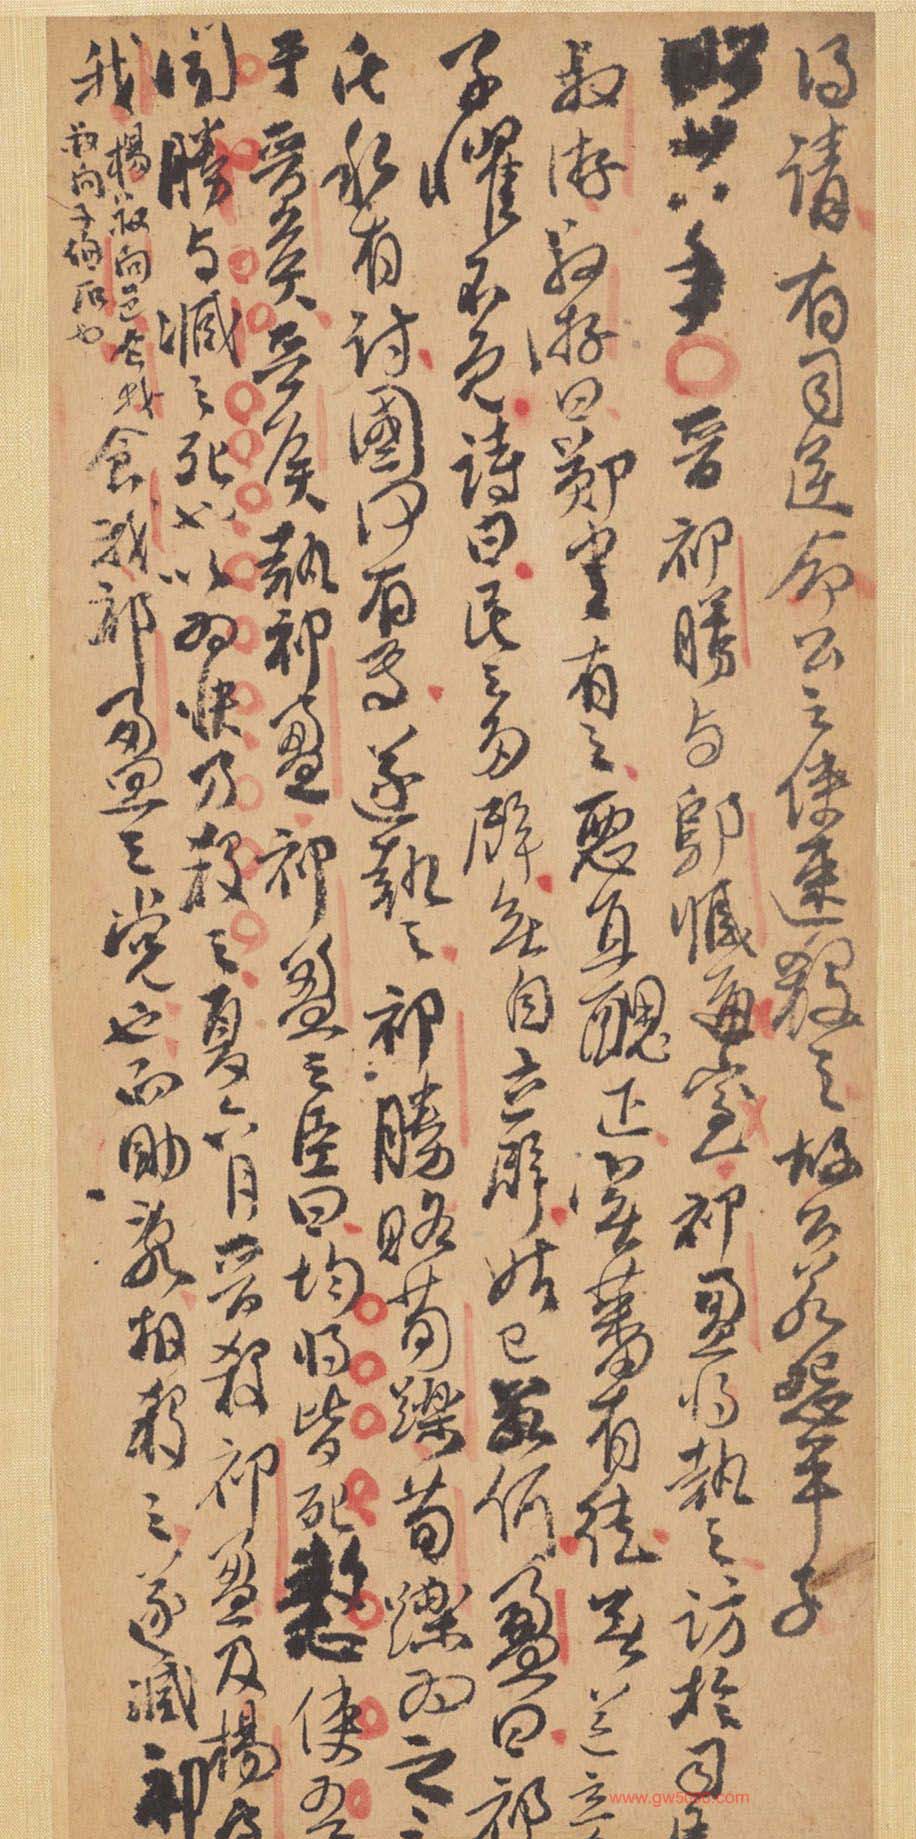 得請有司逆命公之使速殺之故公若怨平子
昭廿八年晉祁勝与鄔臧通室祁盈將執之訪於司馬
叔游叔游曰鄭書有之惡直醜正實蕃有徒無道立
子懼不免詩曰民之多辟無自立辟姑已若何盈曰祁
氏私有討國何有焉遂執之祁勝賂荀躒荀躒為之言
于晉矦晉矦執祁盈祁盈之臣曰均將皆死憖使吾
聞勝与臧之死也以為快乃殺之夏六月晉殺祁盈及楊食
我楊叔向邑食我叔向子伯石也食我祁盈之党也而助亂故殺之遂滅祁
www.gw5000.com